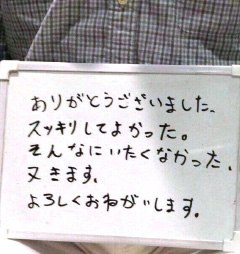 ありがとうございました。
スッキリしてよかった。
そんなにいたくなかった。
又きます。
よろしくおねがいします。